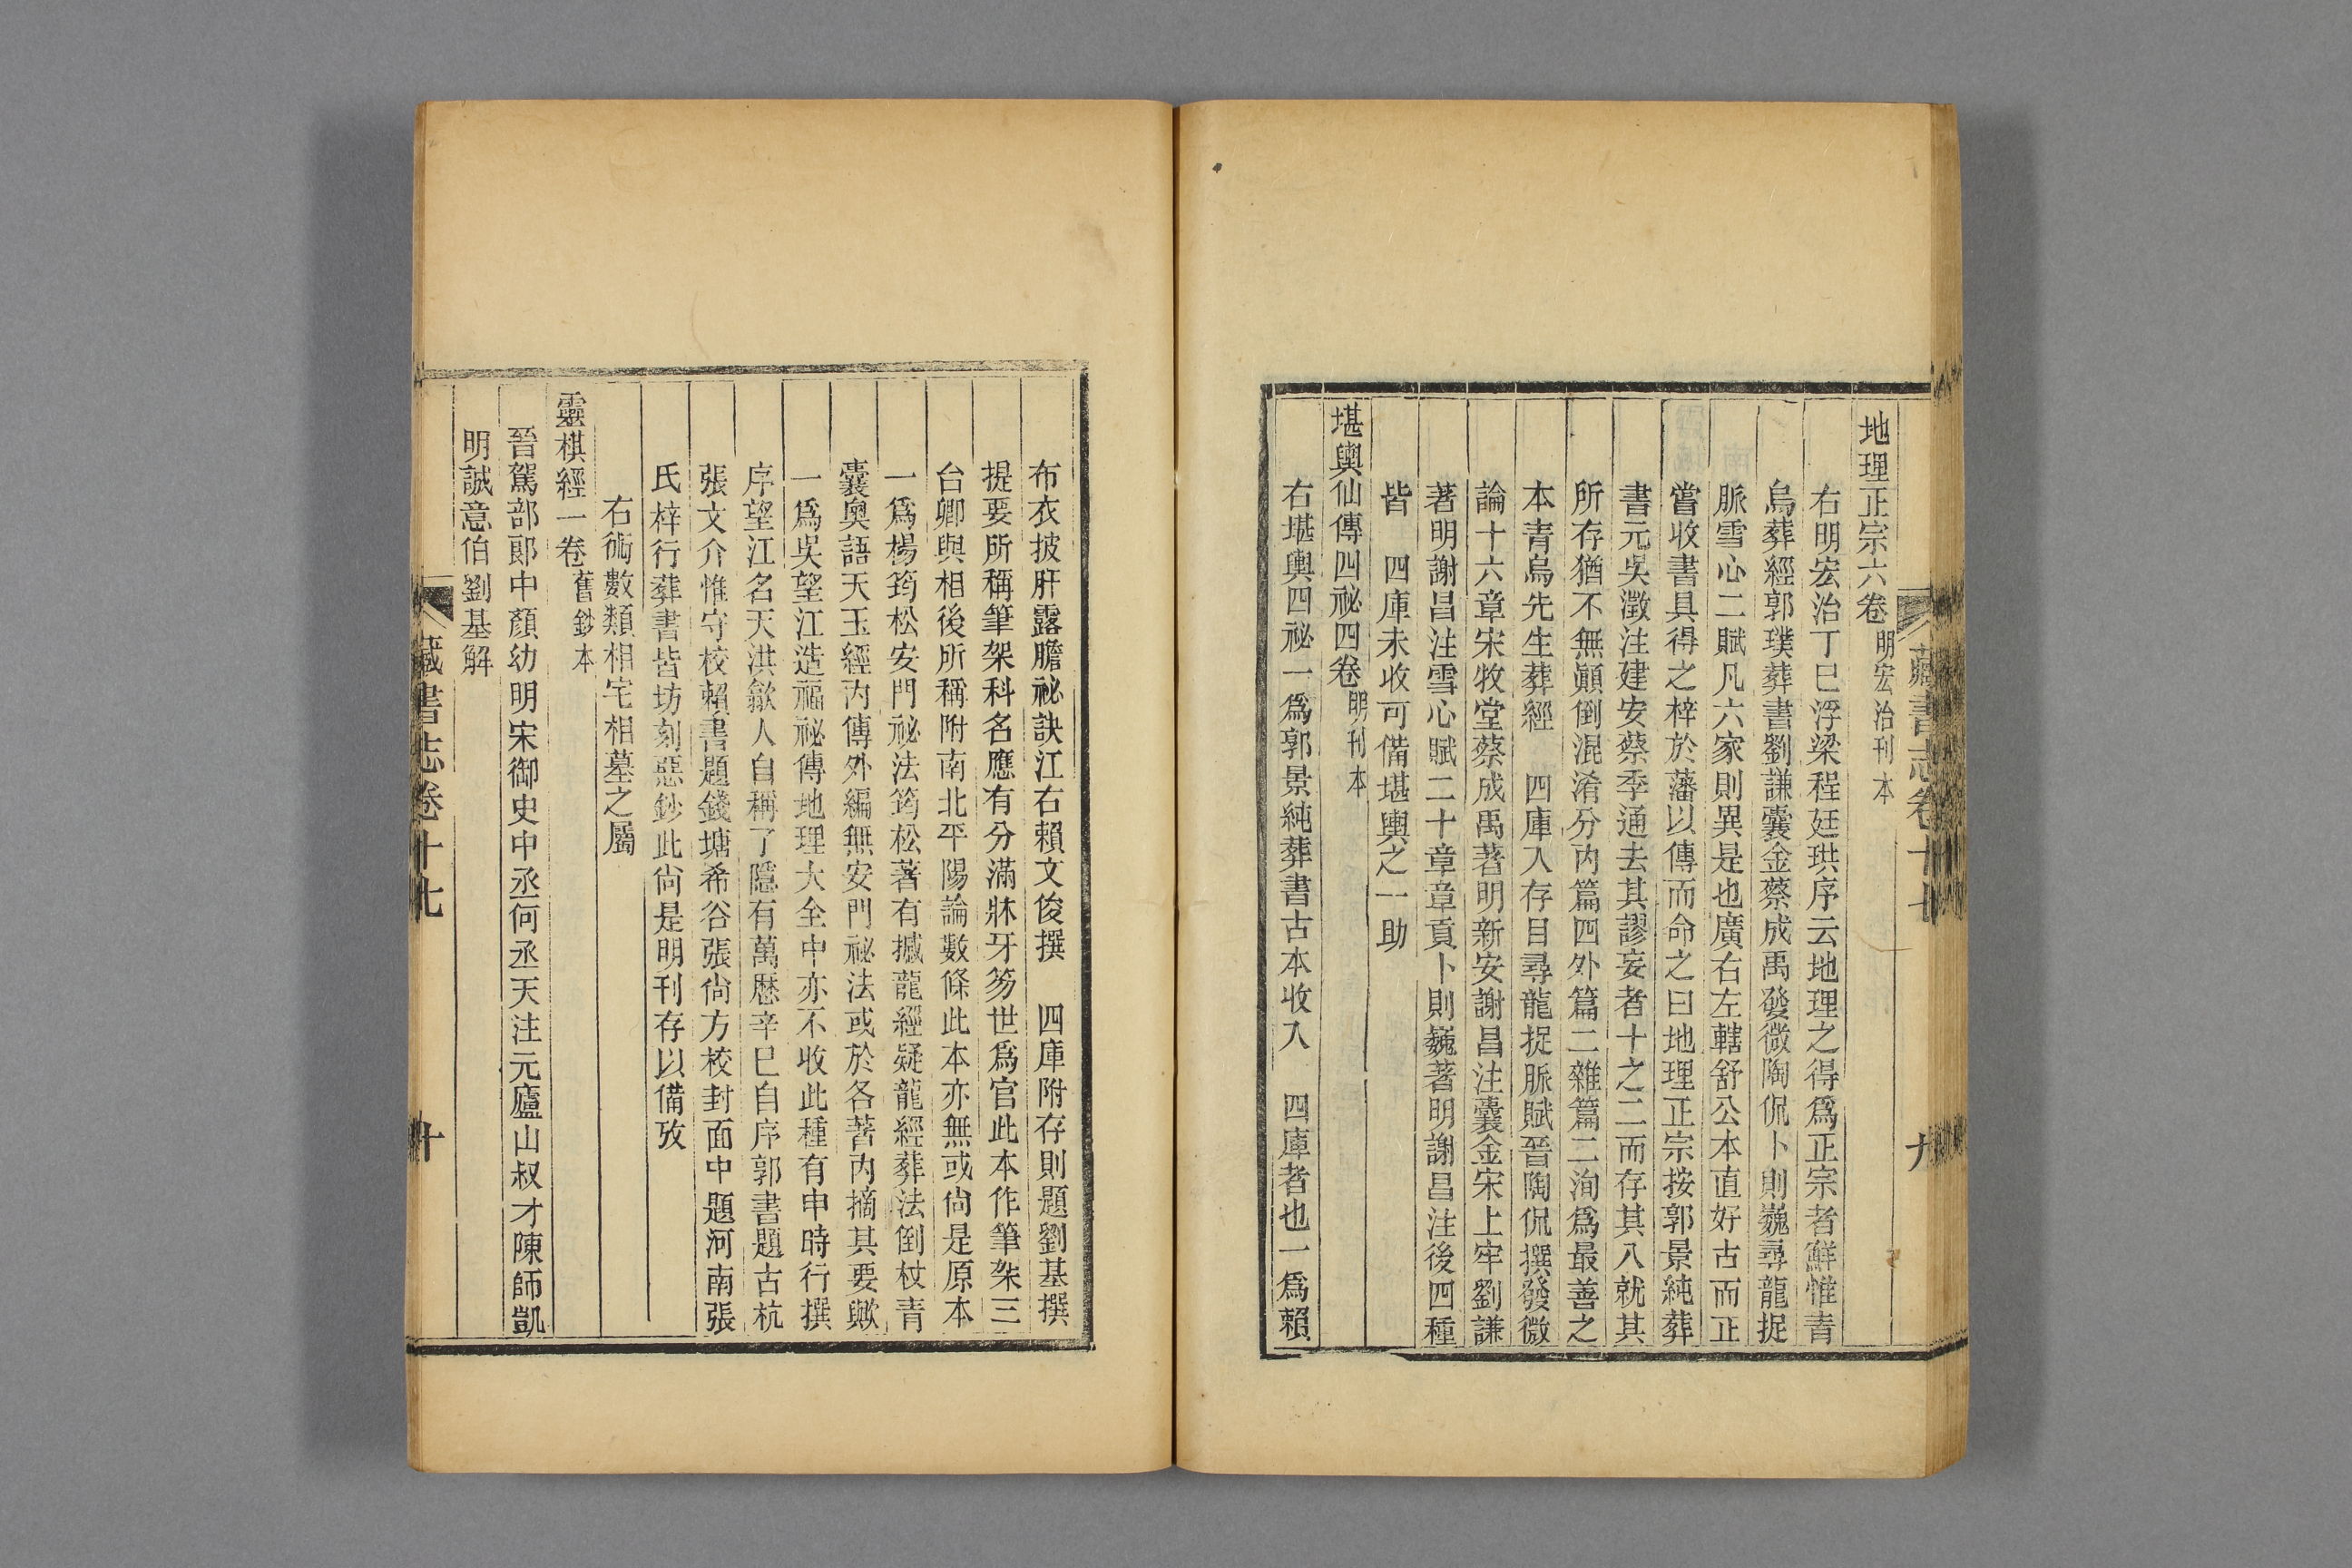 藏書志卷十七
九
地理正宗六卷明宏治刊本
右明宏治丁巳浮梁程廷珙序云地理之得爲正宗者鮮惟青
烏葬經郭璞葬書劉謙囊金蔡成禹發微陶侃卜則巍尋龍捉
脈雪心二賦凡六家則異是也廣右左轄舒公本直好古而正
嘗收書具得之梓於藩以傳而命之曰地理正宗按郭景純葬
書元吳澂注建安蔡季通去其謬妄者十之二而存其八就其
所存猶不無顚倒混淆分內篇四外篇二雜篇二洵爲最善之
本青烏先生葬經　四庫入存目尋龍捉脈賦晉陶侃撰發微
論十六章宋牧堂蔡成禹著明新安謝昌注囊金宋上牢劉謙
著明謝昌注雪心賦二十章章貢卜則巍著明謝昌注後四種
皆　四庫未收可備堪輿之一助
堪輿仙傳四祕四卷明刊本
右堪輿四祕一爲郭景純葬書古本收入　四庫者也一爲賴
布衣披肝露膽祕訣江右賴文俊撰　四庫附存則題劉基撰
提要所稱筆架科名應有分滿牀牙笏世爲官此本作筆架三
台卿與相後所稱附南北平陽論數條此本亦無或尙是原本
一爲楊筠松安門祕法筠松著有撼龍經疑龍經葬法倒杖青
囊奧語天玉經內傳外編無安門祕法或於各著內摘其要歟
一爲吳望江造福祕傳地理大全中亦不收此種有申時行撰
序望江名天洪歙人自稱了隱有萬厯辛巳自序郭書題古杭
張文介惟守校賴書題錢塘希谷張尙方校封面中題河南張
氏梓行葬書皆坊刻惡鈔此尙是明刊存以備攷
右術數類相宅相墓之屬
靈棋經一卷舊鈔本
晉駕部郞中顏幼明宋御史中丞何丞天注元廬山叔才陳師凱
明誠意伯劉基解
藏書志卷十七
十